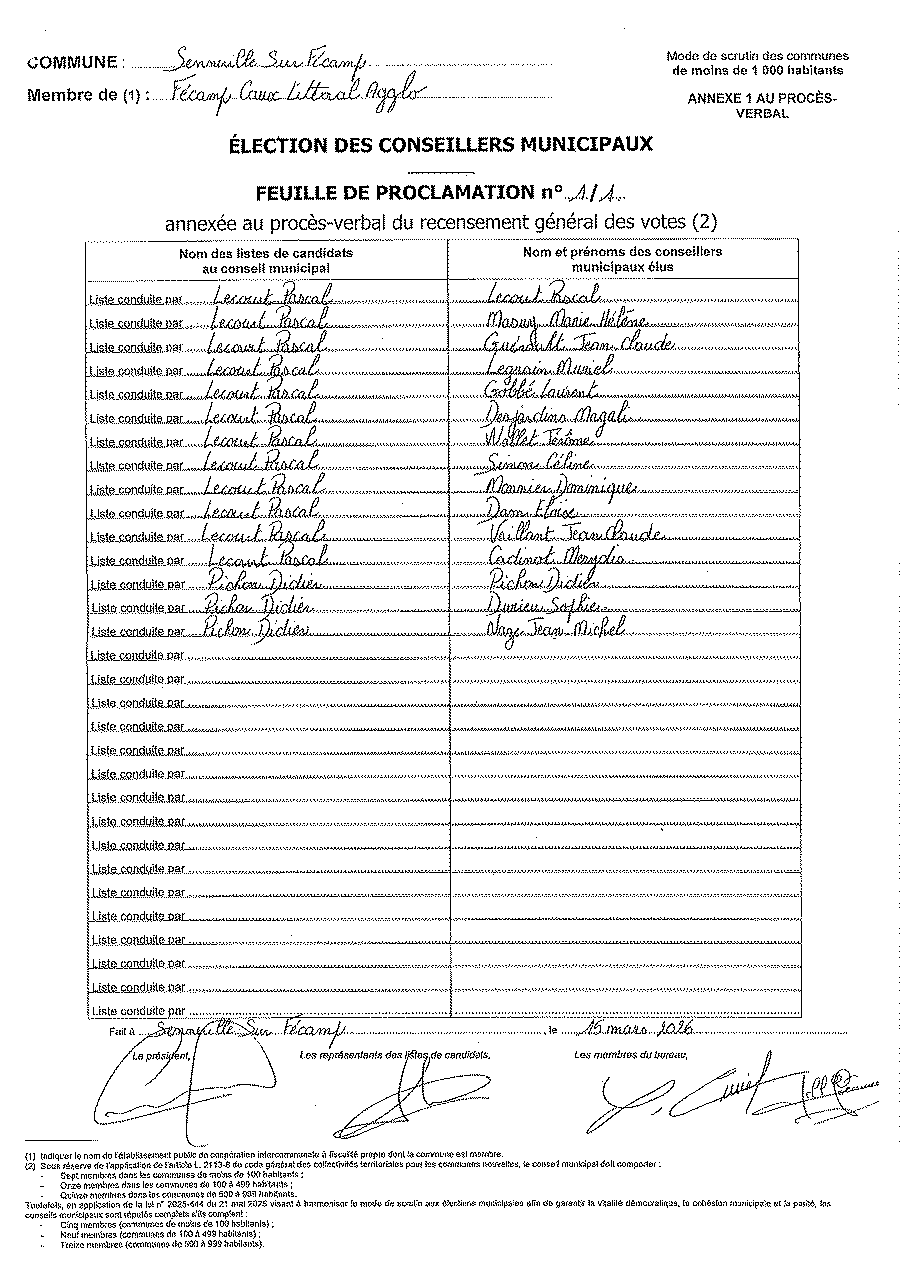 COMMUNE : Senneville Sur Fécamp
Membre de (1) : Fécamp Caux Littoral Agglo
Mode de scrutin des communes
de moins de 1 000 habitants
ANNEXE 1 AU PROCÈS-
VERBAL
ÉLECTION DES CONSEILLERS MUNICIPAUX
FEUILLE DE PROCLAMATION n° 1/1
annexée au procès-verbal du recensement général des votes (2)
Nom des listes de candidats
au conseil municipal
Nom et prénoms des conseillers
municipaux élus
Liste conduite par Lecourt Pascal Lecourt Pascal
Liste conduite par Lecourt Pascal Masuy Marie Hélène
Liste conduite par Lecourt Pascal Guérault Jean Claude
Liste conduite par Lecourt Pascal Legrain Muriel
Liste conduite par Lecourt Pascal Gobbé Laurent
Liste conduite par Lecourt Pascal Desjardins Magali
Liste conduite par Lecourt Pascal Wallet Jérôme
Liste conduite par Lecourt Pascal Simon Céline
Liste conduite par Lecourt Pascal Monnier Dominique
Liste conduite par Lecourt Pascal Dam Eloïse
Liste conduite par Lecourt Pascal Vaillant Jean Claude
Liste conduite par Lecourt Pascal Cadinot
Liste conduite par Pichon Didier Pichon Didier
Liste conduite par Pichon Didier Durieu Sophie
Liste conduite par Pichon Didier Naze Jean Michel
Liste conduite par
Liste conduite par
Liste conduite par
Liste conduite par
Liste conduite par
Liste conduite par
Liste conduite par
Liste conduite par
Liste conduite par
Liste conduite par
Liste conduite par
Liste conduite par
Liste conduite par
Liste conduite par
Liste conduite par
Liste conduite par
Fait à Senneville Sur Fécamp , le 15 mars 2026
Le président, Les représentants des listes de candidats, Les membres du bureau,
(1) Indiquer le nom de l'établissement public de coopération intercommunale à fiscalité propre dont la commune est membre.
(2) Sous réserve de l'application de l'article L. 2113-8 du code général des collectivités territoriales pour les communes nouvelles, le conseil municipal doit comporter :
- Sept membres dans les communes de moins de 100 habitants ;
- Onze membres dans les communes de 100 à 499 habitants ;
- Quinze membres dans les communes de 500 à 999 habitants.
Toutefois, en application de la loi n° 2025-444 du 21 mai 2025 visant à harmoniser le mode de scrutin aux élections municipales afin de garantir la vitalité démocratique, la cohésion municipale et la parité, les
conseils municipaux sont réputés complets s'ils comptent :
- Cinq membres (communes de moins de 100 habitants) ;
- Neuf membres (communes de 100 à 499 habitants) ;
- Treize membres (communes de 500 à 999 habitants).